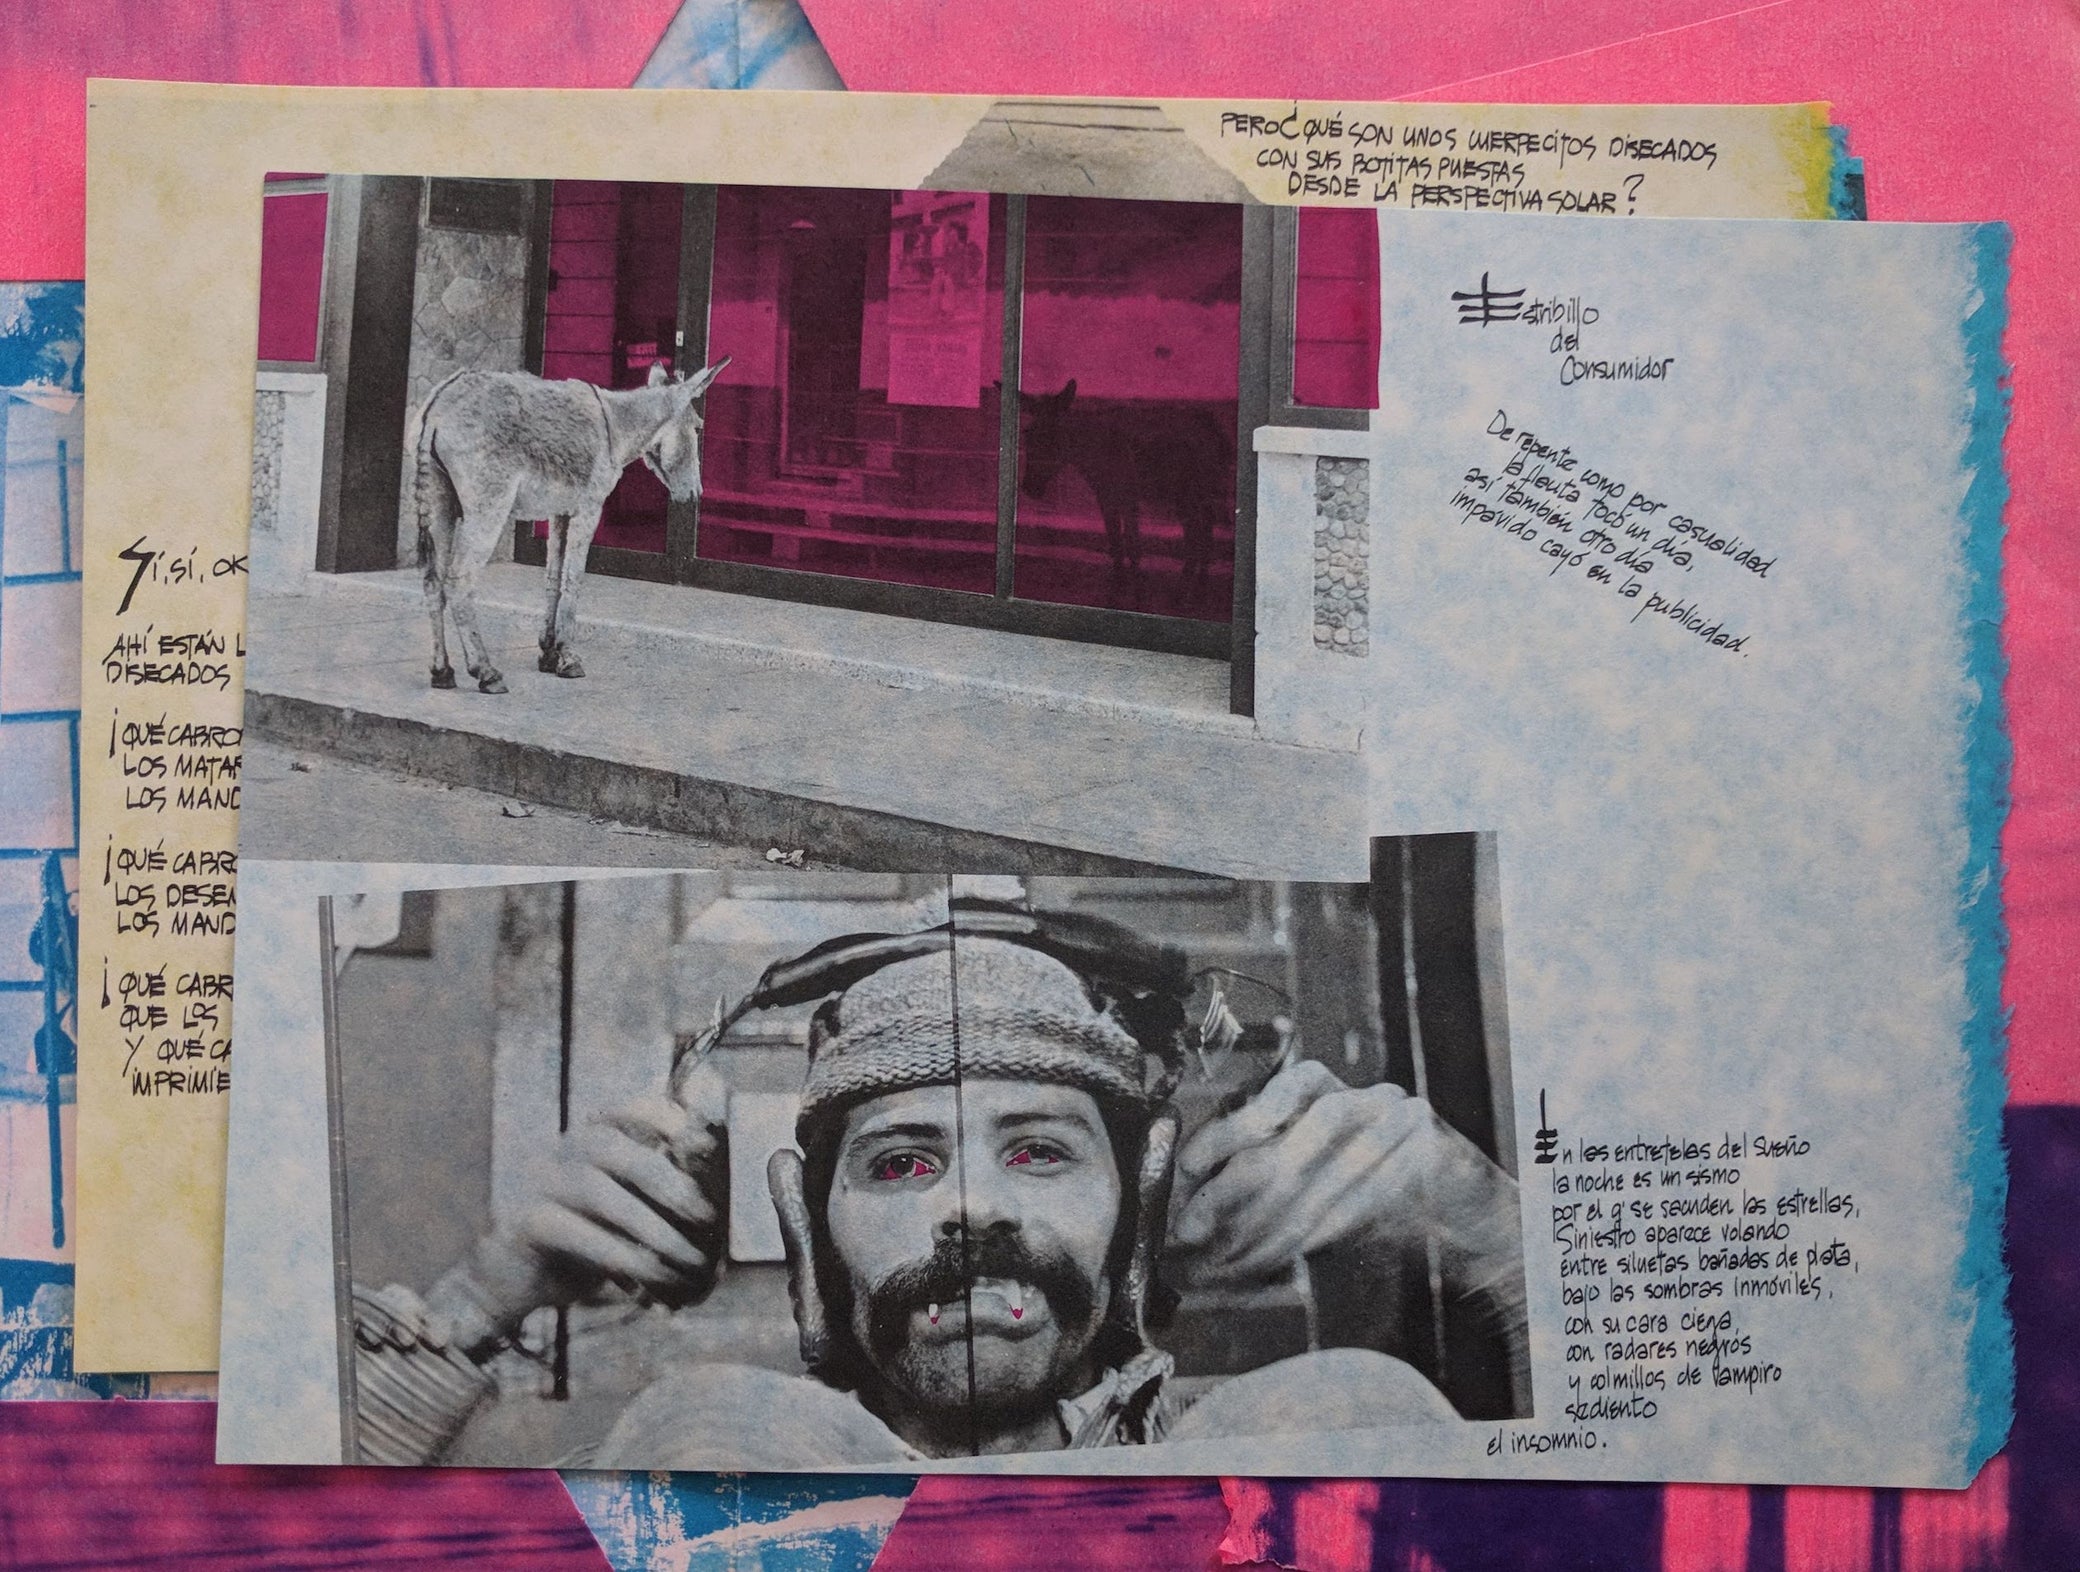 PERO ¿QUÉ SON UNOS CUERPECITOS DISECADOS
CON SUS BOTITAS PUESTAS
DESDE LA PERSPECTIVA SOLAR?
Estribillo
del
Consumidor
De repente como por casualidad
la flauta tocó un día,
así también otro día
impávido cayó en la publicidad.
Sí, sí, OK
AHÍ ESTÁN L
DISECADOS
¡QUÉ CABRO
LOS MATAR
LOS MAND
¡QUÉ CABRO
LOS DESEN
LOS MAND
¡QUÉ CABR
QUE LOS
Y QUÉ CA
IMPRIMIE
En las entretelas del sueño
la noche es un sismo
por el q' se sacuden las estrellas,
Siniestro aparece volando
entre siluetas bañadas de plata,
bajo las sombras inmóviles,
con su cara ciega,
con radares negros
y colmillos de vampiro
sediento
el insomnio.